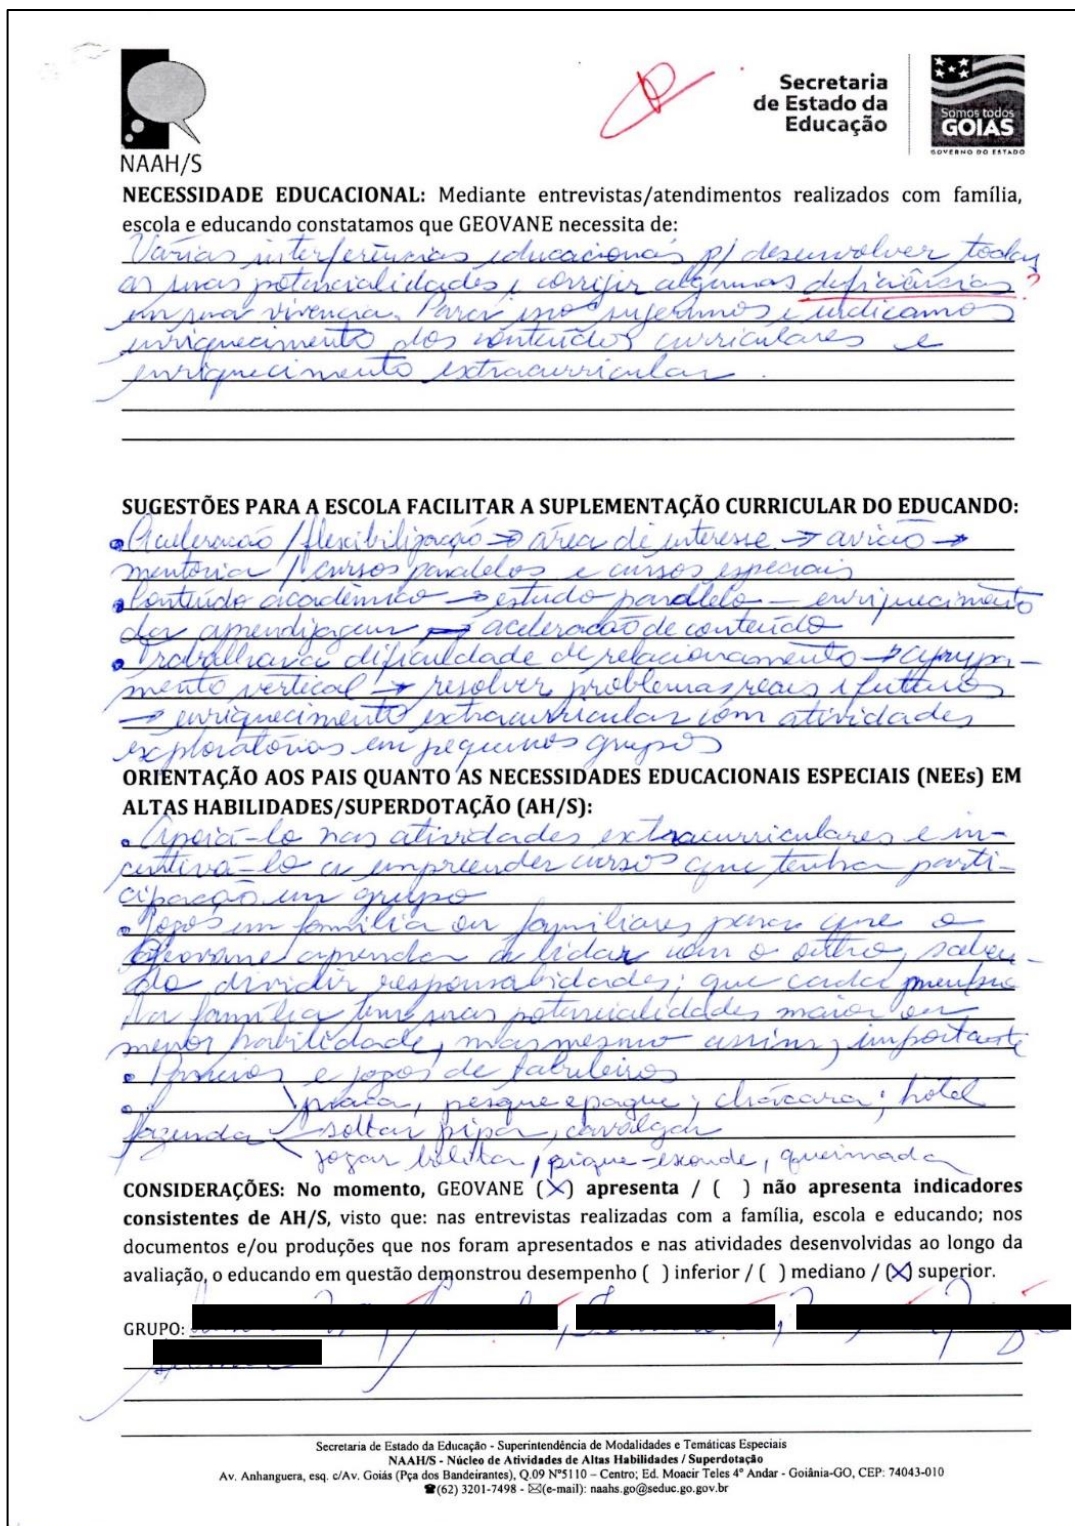 NAAH/S
Secretaria
de Estado da
Educação
Somos todos
GOIÁS
GOVERNO DO ESTADO
NECESSIDADE EDUCACIONAL: Mediante entrevistas/atendimentos realizados com família,
escola e educando constatamos que GEOVANE necessita de:
Várias interferências educacionais p/ desenvolver todas
as suas potencialidades e corrigir algumas deficiências ?
em sua vivência. Para isso sugerimos e indicamos
enriquecimento dos conteúdos curriculares e
enriquecimento extracurricular.
SUGESTÕES PARA A ESCOLA FACILITAR A SUPLEMENTAÇÃO CURRICULAR DO EDUCANDO:
• Aceleração / flexibilização → área de interesse → avião →
mentoria / cursos paralelos e cursos especiais
• Conteúdo acadêmico → estudo paralelo – enriquecimento
da aprendizagem → aceleração de conteúdo
• Trabalhar a dificuldade de relacionamento → agrupa-
mento vertical → resolver problemas reais e futuros
→ enriquecimento extracurricular com atividades
exploratórias em pequenos grupos
ORIENTAÇÃO AOS PAIS QUANTO AS NECESSIDADES EDUCACIONAIS ESPECIAIS (NEEs) EM
ALTAS HABILIDADES/SUPERDOTAÇÃO (AH/S):
• Apoiá-lo nas atividades extracurriculares e in-
centivá-lo a empreender curso que tenha parti-
cipação em grupo
• Jogos em família ou familiares para que o
Geovane aprenda a lidar com o outro, saben-
do dividir responsabilidades; que cada membro
da família tem suas potencialidades maior ou
menor habilidade, mas mesmo assim, importante
• Passeios e jogos de tabuleiros
• praça, pesque e pague, chácara, hotel
fazenda soltar pipa, cavalgar
jogar bolita, pique-esconde, queimada
CONSIDERAÇÕES: No momento, GEOVANE (X) apresenta / ( ) não apresenta indicadores
consistentes de AH/S, visto que: nas entrevistas realizadas com a família, escola e educando; nos
documentos e/ou produções que nos foram apresentados e nas atividades desenvolvidas ao longo da
avaliação, o educando em questão demonstrou desempenho ( ) inferior / ( ) mediano / (X) superior.
GRUPO:
Secretaria de Estado da Educação - Superintendência de Modalidades e Temáticas Especiais
NAAH/S - Núcleo de Atividades de Altas Habilidades / Superdotação
Av. Anhanguera, esq. c/Av. Goiás (Pça dos Bandeirantes), Q.09 Nº5110 – Centro; Ed. Moacir Teles 4º Andar - Goiânia-GO, CEP: 74043-010
☎(62) 3201-7498 - ✉(e-mail): naahs.go@seduc.go.gov.br